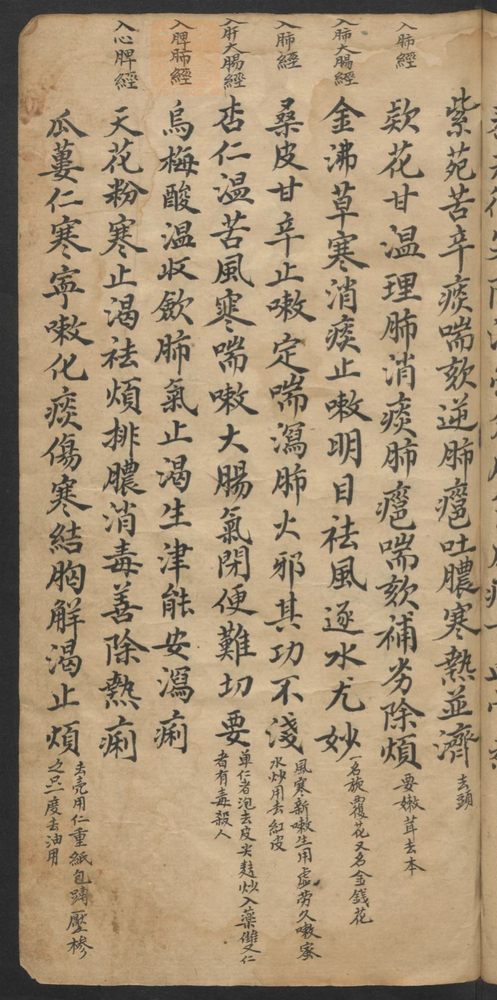 紫苑苦辛痰喘欬逆肺癰吐膿寒熱並濟 去頭
入肺經
欵花甘溫理肺消痰肺癰喘欬補劳除煩 要嫩茸去本
入肺大腸經
金沸草寒消痰止嗽明目祛風逐水尤妙 一名旋覆花又名金錢花
入肺經
桑皮甘辛止嗽定喘瀉肺火邪其功不淺 風寒新嗽生用虛劳久嗽蜜
水炒用去紅皮
入肝大腸經
杏仁温苦風寒喘嗽大腸氣閉便難切要 單仁者泡去皮尖麩炒入藥雙仁
者有毒殺人
入脾肺經
烏梅酸温収歛肺氣止渴生津能安瀉痢
入心脾經
天花粉寒止渴祛煩排膿消毒善除熱痢
瓜蔞仁寒寧嗽化痰傷寒結胸解渴止煩 去壳用仁重紙包
壓糝
之只一度去油用